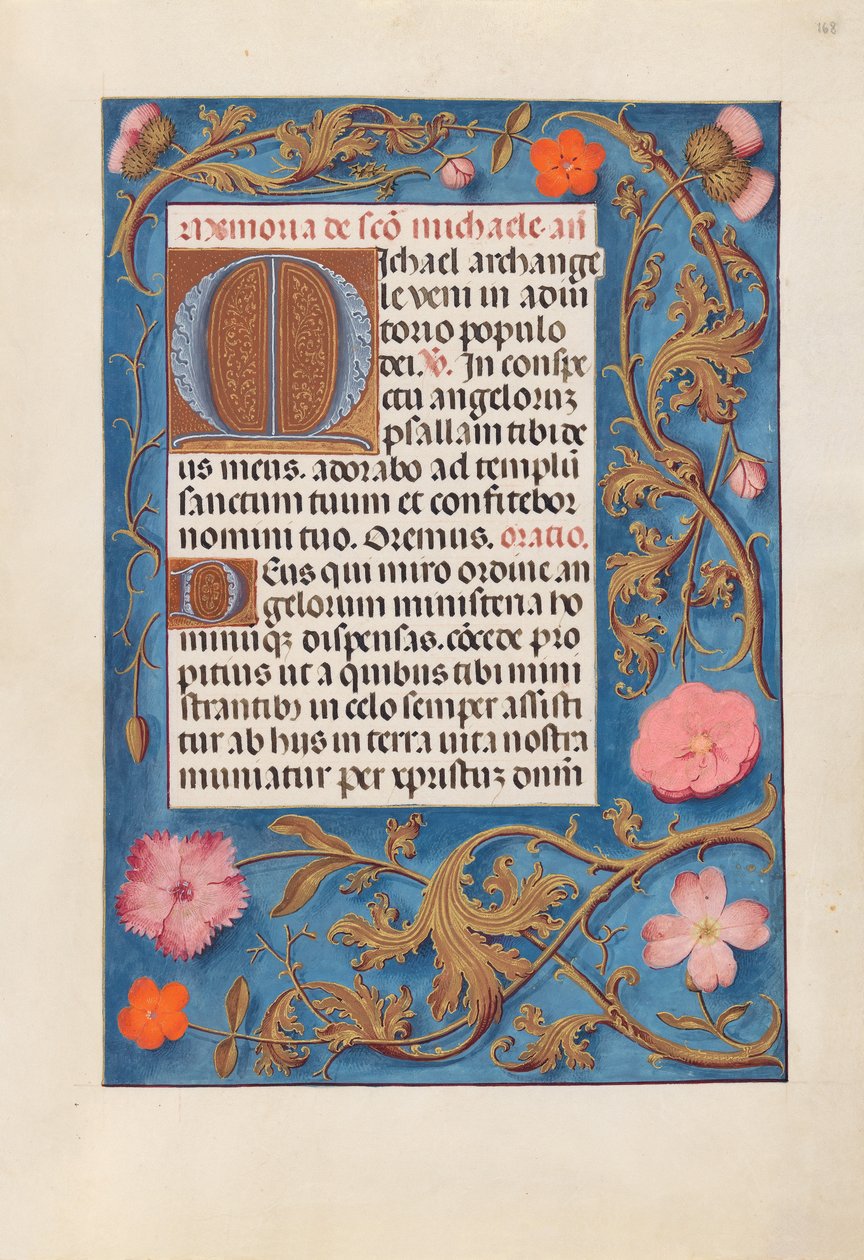 168
Memoria de scō michaele. an̄
Michael archange
le veni in adiu
torio populo
dei. V. In conspe
ctu angeloruʒ
psallam tibi de
us meus. adorabo ad templū
sanctum tuum et confitebor
nomini tuo. Oremus. oratio.
Deus qui miro ordine an
gelorum ministeria ho
minūqʒ dispensas. cōcede pro
pitius ut a quibus tibi mini
strantibʒ in celo semper assisti
tur ab hijs in terra uita nostra
muniatur per xpristuʒ dnm̄